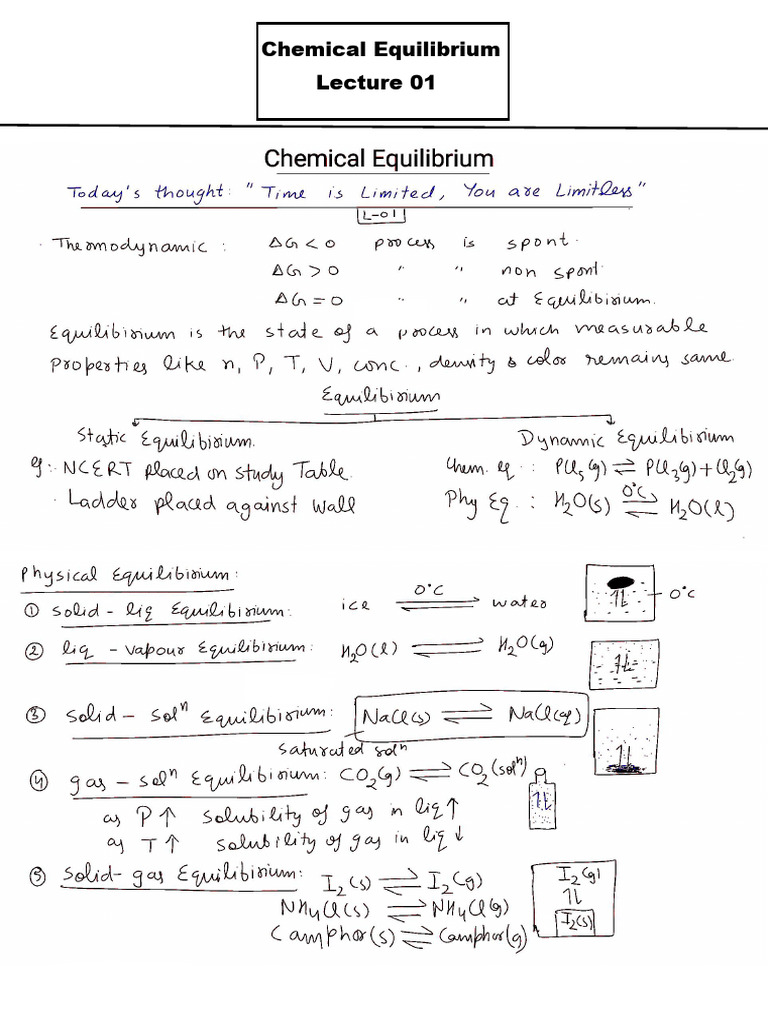 Chemical Equilibrium
Lecture 01
Chemical Equilibrium
Today's thought: "Time is Limited, You are Limitless"
L-01
Thermodynamic : ΔG < 0 process is spont.
ΔG > 0 " " non spont.
ΔG = 0 " " at Equilibrium.
Equilibrium is the state of a process in which measurable
Properties like n, P, T, V, conc., density & color remains same.
Equilibrium
Static Equilibrium. Dynamic Equilibrium
eg:- NCERT placed on Study Table. Chem. eq : PCl₅(g) ⇌ PCl₃(g) + Cl₂(g)
· Ladder placed against wall Phy Eq. : H₂O(s) ⇌ 0°C H₂O(l)
Physical Equilibrium:
① Solid - liq Equilibrium: ice ⇌ 0°C water 0°C
② liq - vapour Equilibrium: H₂O(l) ⇌ H₂O(g)
③ Solid - Solⁿ Equilibrium: NaCl(s) ⇌ NaCl(aq)
Saturated solⁿ
④ gas - solⁿ Equilibrium: CO₂(g) ⇌ CO₂(solⁿ)
as P↑ solubility of gas in liq ↑
as T↑ solubility of gas in liq ↓
⑤ Solid- gas Equilibrium: I₂(s) ⇌ I₂(g) I₂(g)
NH₄Cl(s) ⇌ NH₄Cl(g) I₂(s)
Camphor(s) ⇌ Camphor(g)